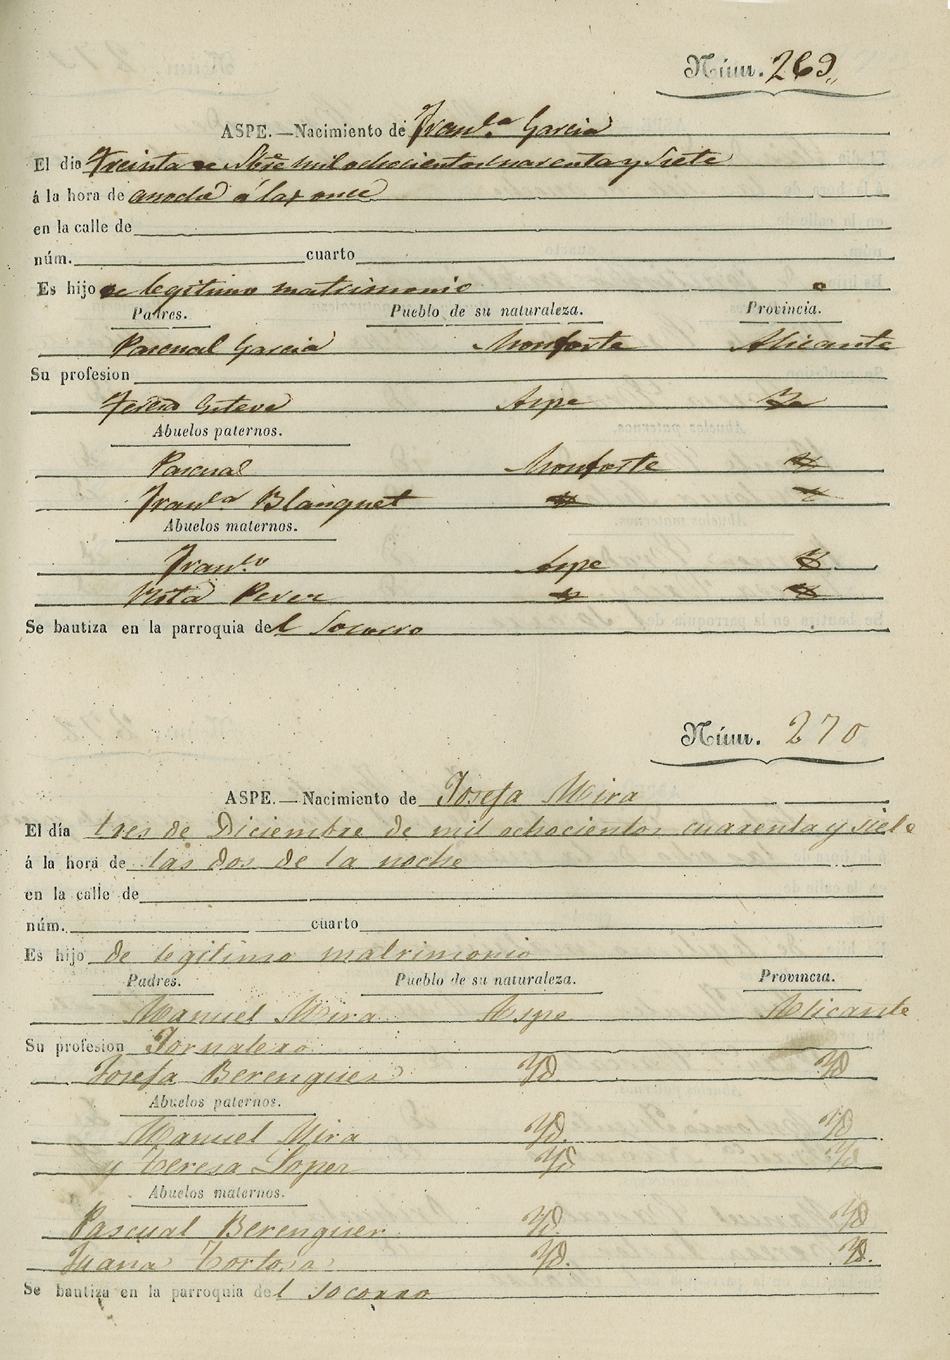 Núm. 269,,
ASPE.—Nacimiento de Franca Garcia
El dia treinta de Nbre mil ochocientos cuarenta y siete
á la hora de anoche á las once
en la calle de
núm. cuarto
Es hijo de legitimo matrimonio
Padres. Pueblo de su naturaleza. Provincia.
Pascual Garcia Monforte Alicante
Su profesion
Teresa Esteve Aspe
Abuelos paternos.
Pascual Monforte
Franca Blanquet
Abuelos maternos.
Franco Aspe
Rita Perez
Se bautiza en la parroquia del Socorro
Núm. 270
ASPE.—Nacimiento de Josefa Mira
El día tres de Diciembre de mil ochocientos cuarenta y siete
á la hora de las dos de la noche
en la calle de
núm. cuarto
Es hijo de legitimo matrimonio
Padres. Pueblo de su naturaleza. Provincia.
Manuel Mira Aspe Alicante
Su profesion Jornalero
Josefa Berenguer Yd Yd
Abuelos paternos.
Manuel Mira Yd. Yd
y Teresa Lopez Yd Yd
Abuelos maternos.
Pascual Berenguer Yd Yd
Juana Tortosa Yd. Yd.
Se bautiza en la parroquia del socorro